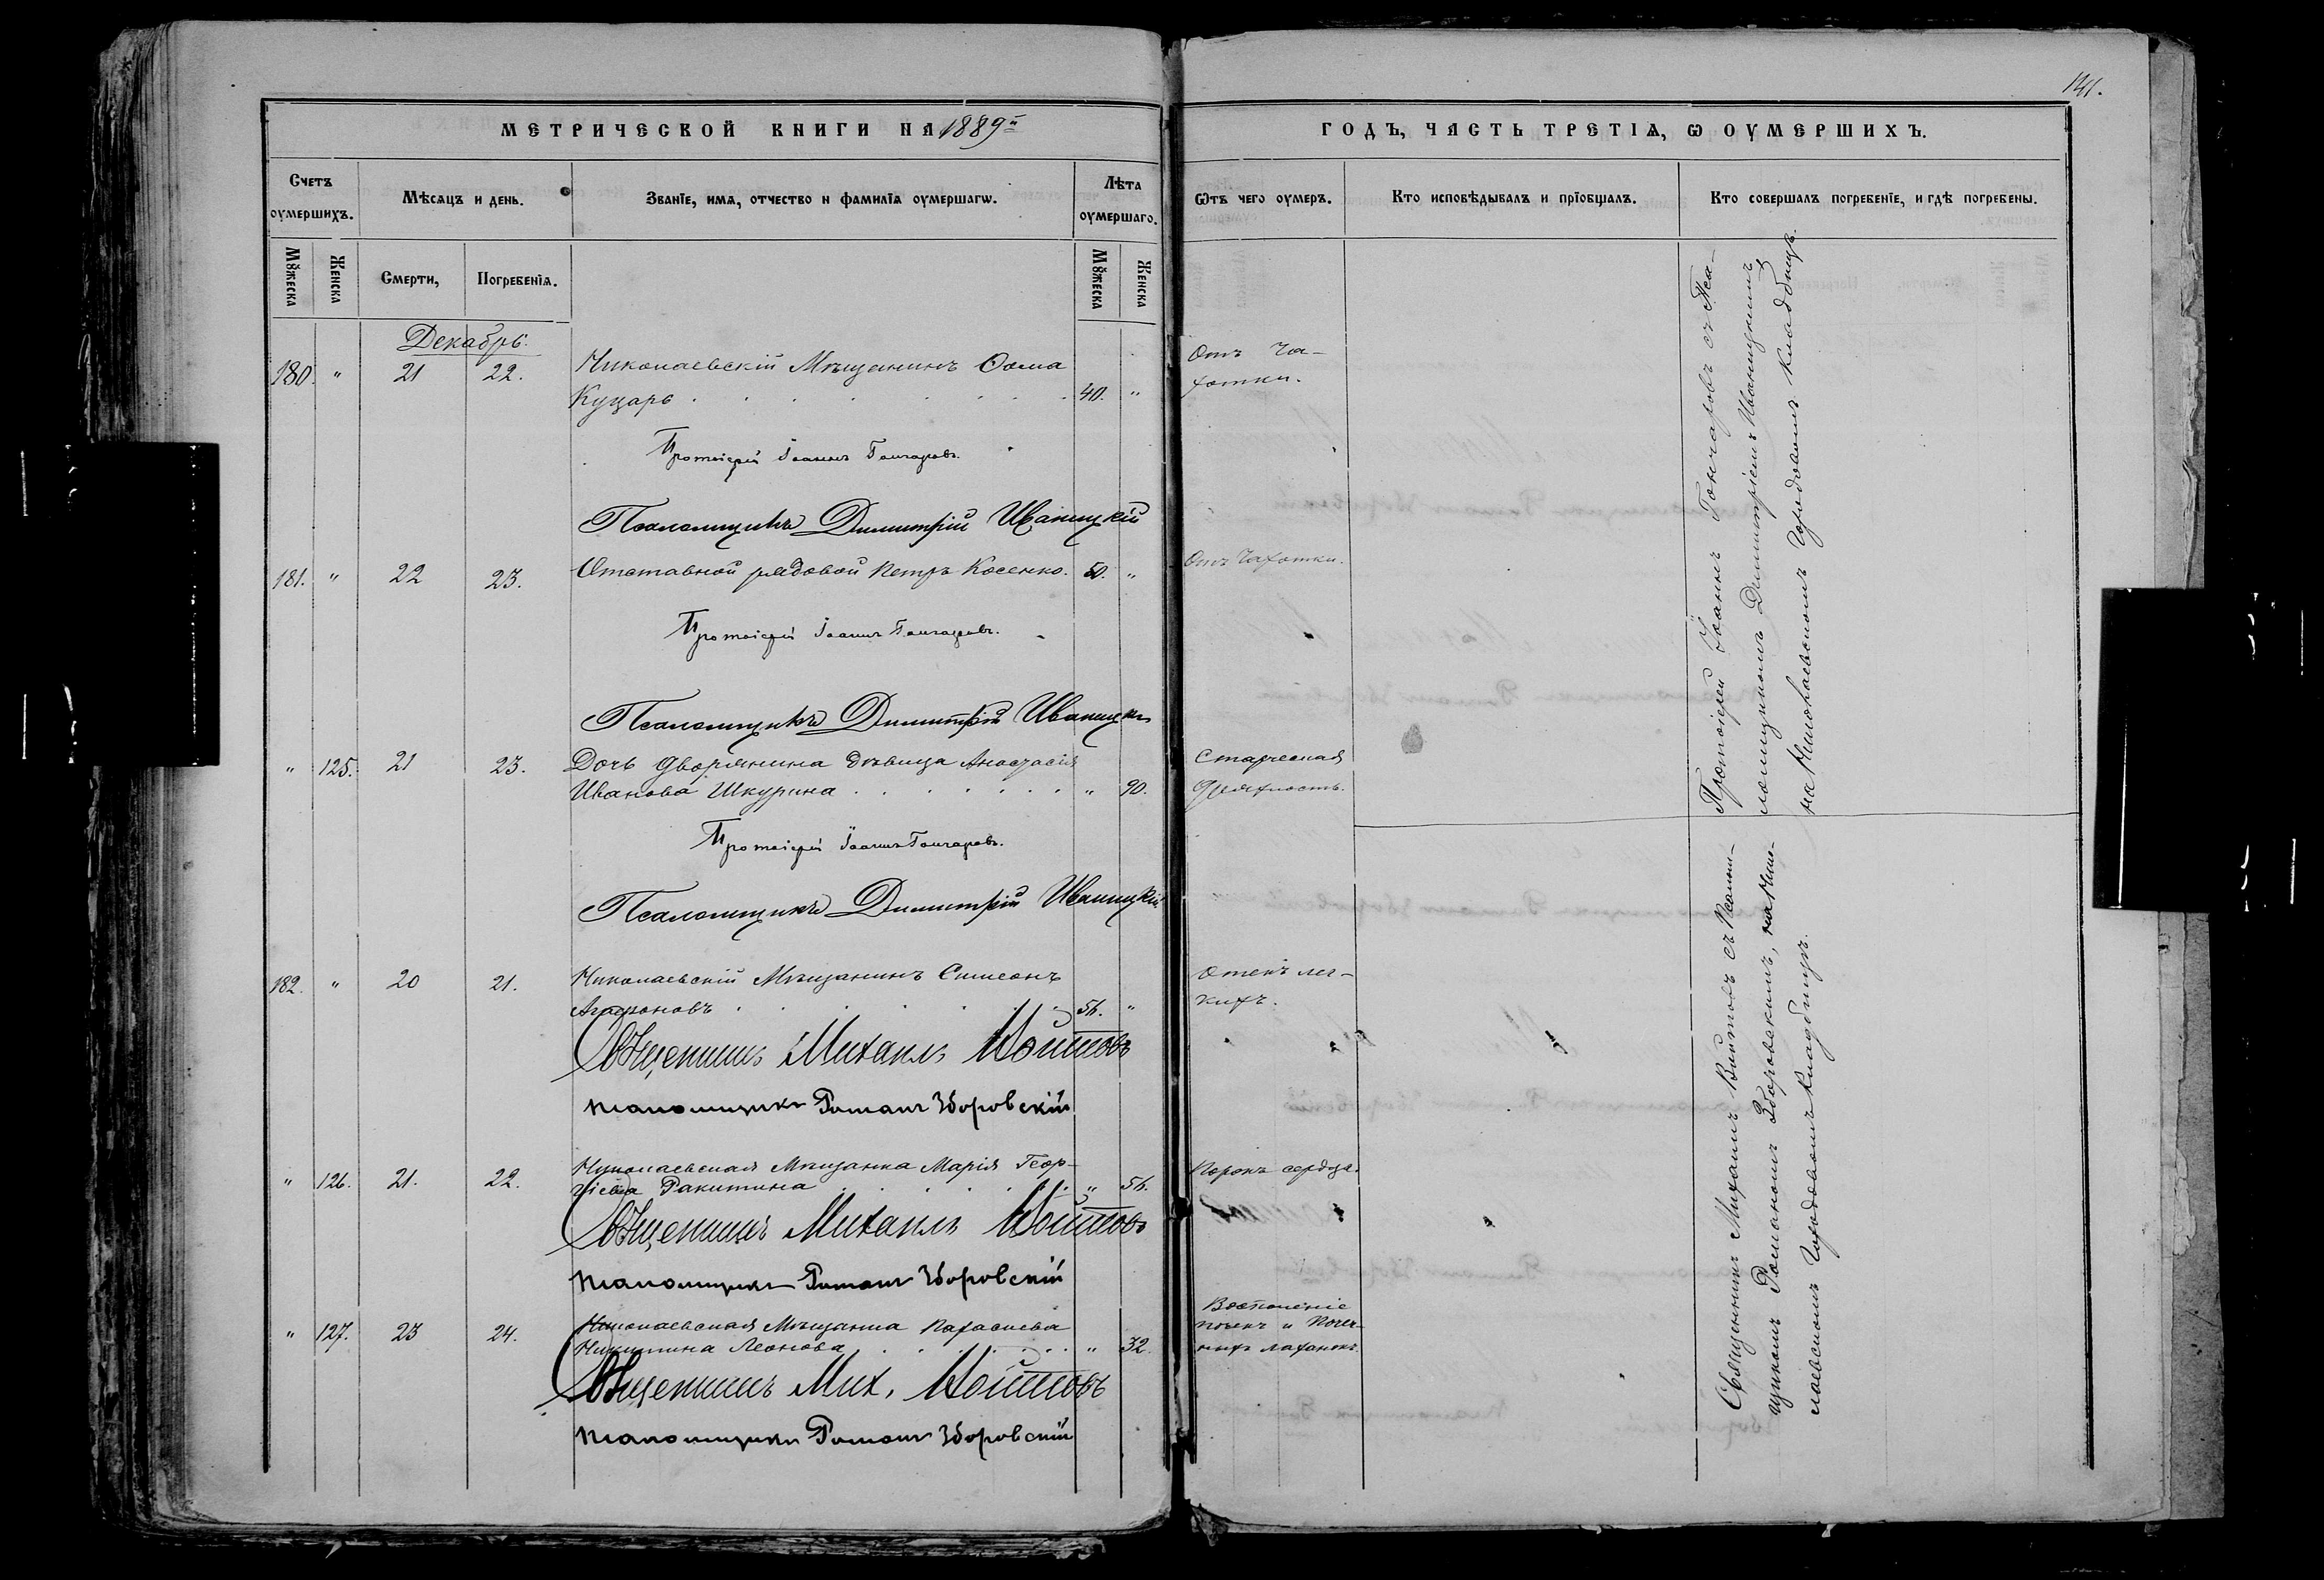 141.
МЕТРИЧЕСКОЙ КНИГИ НА 1889й
ГОДЪ, ЧАСТЬ ТРЕТІѦ, Ѡ ОУМЕРШИХЪ.
Счетъ оумершихъ.
Мѣсѧцъ и день.
Званїе, имѧ, отчество и фамилїѧ оумершагѡ.
Лѣта оумершаго.
Ѿтъ чего оумеръ.
Кто исповѣдывалъ и прїобщалъ.
Кто совершалъ погребенїе, и гдѣ погребены.
Мꙋжеска
Женска
Смерти,
Погребенїѧ.
Мꙋжеска
Женска
Декабрь.
180. " 21 22. Николаевскій Мѣщанинъ Ѳома Отъ Ча-
Куцарь 40. " хотки.
Протоіерей Іоаннъ Гончаровъ.
Псаломщикъ Димитрій Иваницкій
181. " 22 23. Отставной рядовой Петръ Косенко. 50. " Отъ Чахотки.
Протоіерей Іоаннъ Гончаровъ.
Псаломщикъ Димитрій Иваницкій
" 125. 21 23. Дочь дворянина дѣвица Анастасія Старческая
Иванова Шкурина " 90. дряхлость.
Протоіерей Іоаннъ Гончаровъ.
Псаломщикъ Димитрій Иваницкій
182. " 20 21. Николаевскій Мѣщанинъ Симеонъ Отекъ лег-
Агафоновъ 56. " кихъ.
Священникъ Михаилъ Войтовъ
Псаломщикъ Романъ Зборовскій
" 126. 21. 22. Николаевская Мѣщанка Марія Геор- Порокъ сердца.
гіева Ракитина " 56.
Священникъ Михаилъ Войтовъ
Псаломщикъ Романъ Зборовскій
" 127. 23 24. Николаевская Мѣщанка Параскева Воспаленіе
почекъ и Почеч-
Никитина Леонова " 32. ныхъ лаханокъ.
Священникъ Мих. Войтовъ
Псаломщикъ Романъ Зборовскій
Протоіерей Іоаннъ Гончаровъ съ Пса-
ломщикомъ Димитріемъ Иваницкимъ
на Николаевскомъ Городовомъ Кладбищѣ.
Священникъ Михаилъ Войтовъ съ Псалом-
щикомъ Романомъ Зборовскимъ, на Нико-
лаевскомъ Городовомъ Кладбищѣ.